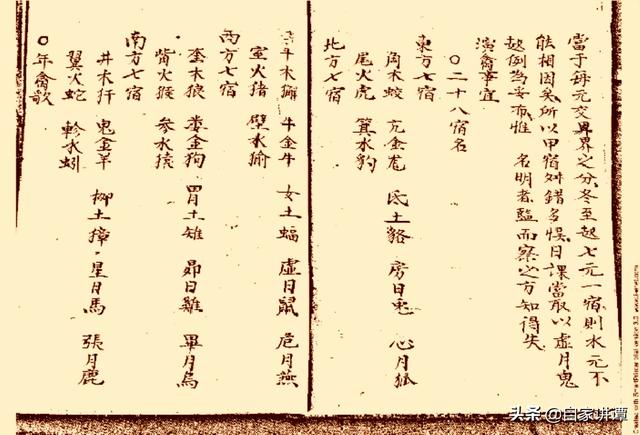 當于每元交界之分冬至起七元一宿則水元不
能相因矣所以甲宿舛錯多悞日課當取以虛月鬼
起例當妄布惟 名明者監而察之方知得失
演禽事宜
〇二十八宿名
東方七宿
角木蛟 亢金龙 氐土貉 房日兎 心月狐
尾火虎 箕水豹
北方七宿
斗木獬 牛金牛 女土蝠 虛月鼠 危月燕
室火猪 壁水㺄
西方七宿
奎木狼 婁金狗 胃土雉 昴日雞 畢月烏
觜火猴 参水猿
南方七宿
井木犴 鬼金羊 柳土獐 星日馬 張月鹿
翼火蛇 軫水蚓
〇年禽歌
头条 @白家讲谭